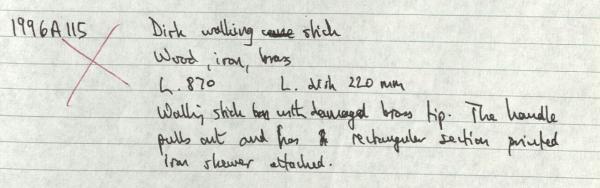 1996A115 Dirk walking stick
Wood, iron, brass
L. 870 L. dirk 220 mm
Walking stick with damaged brass tip. The handle
pulls out and has rectangular section pointed
iron skewer attached.